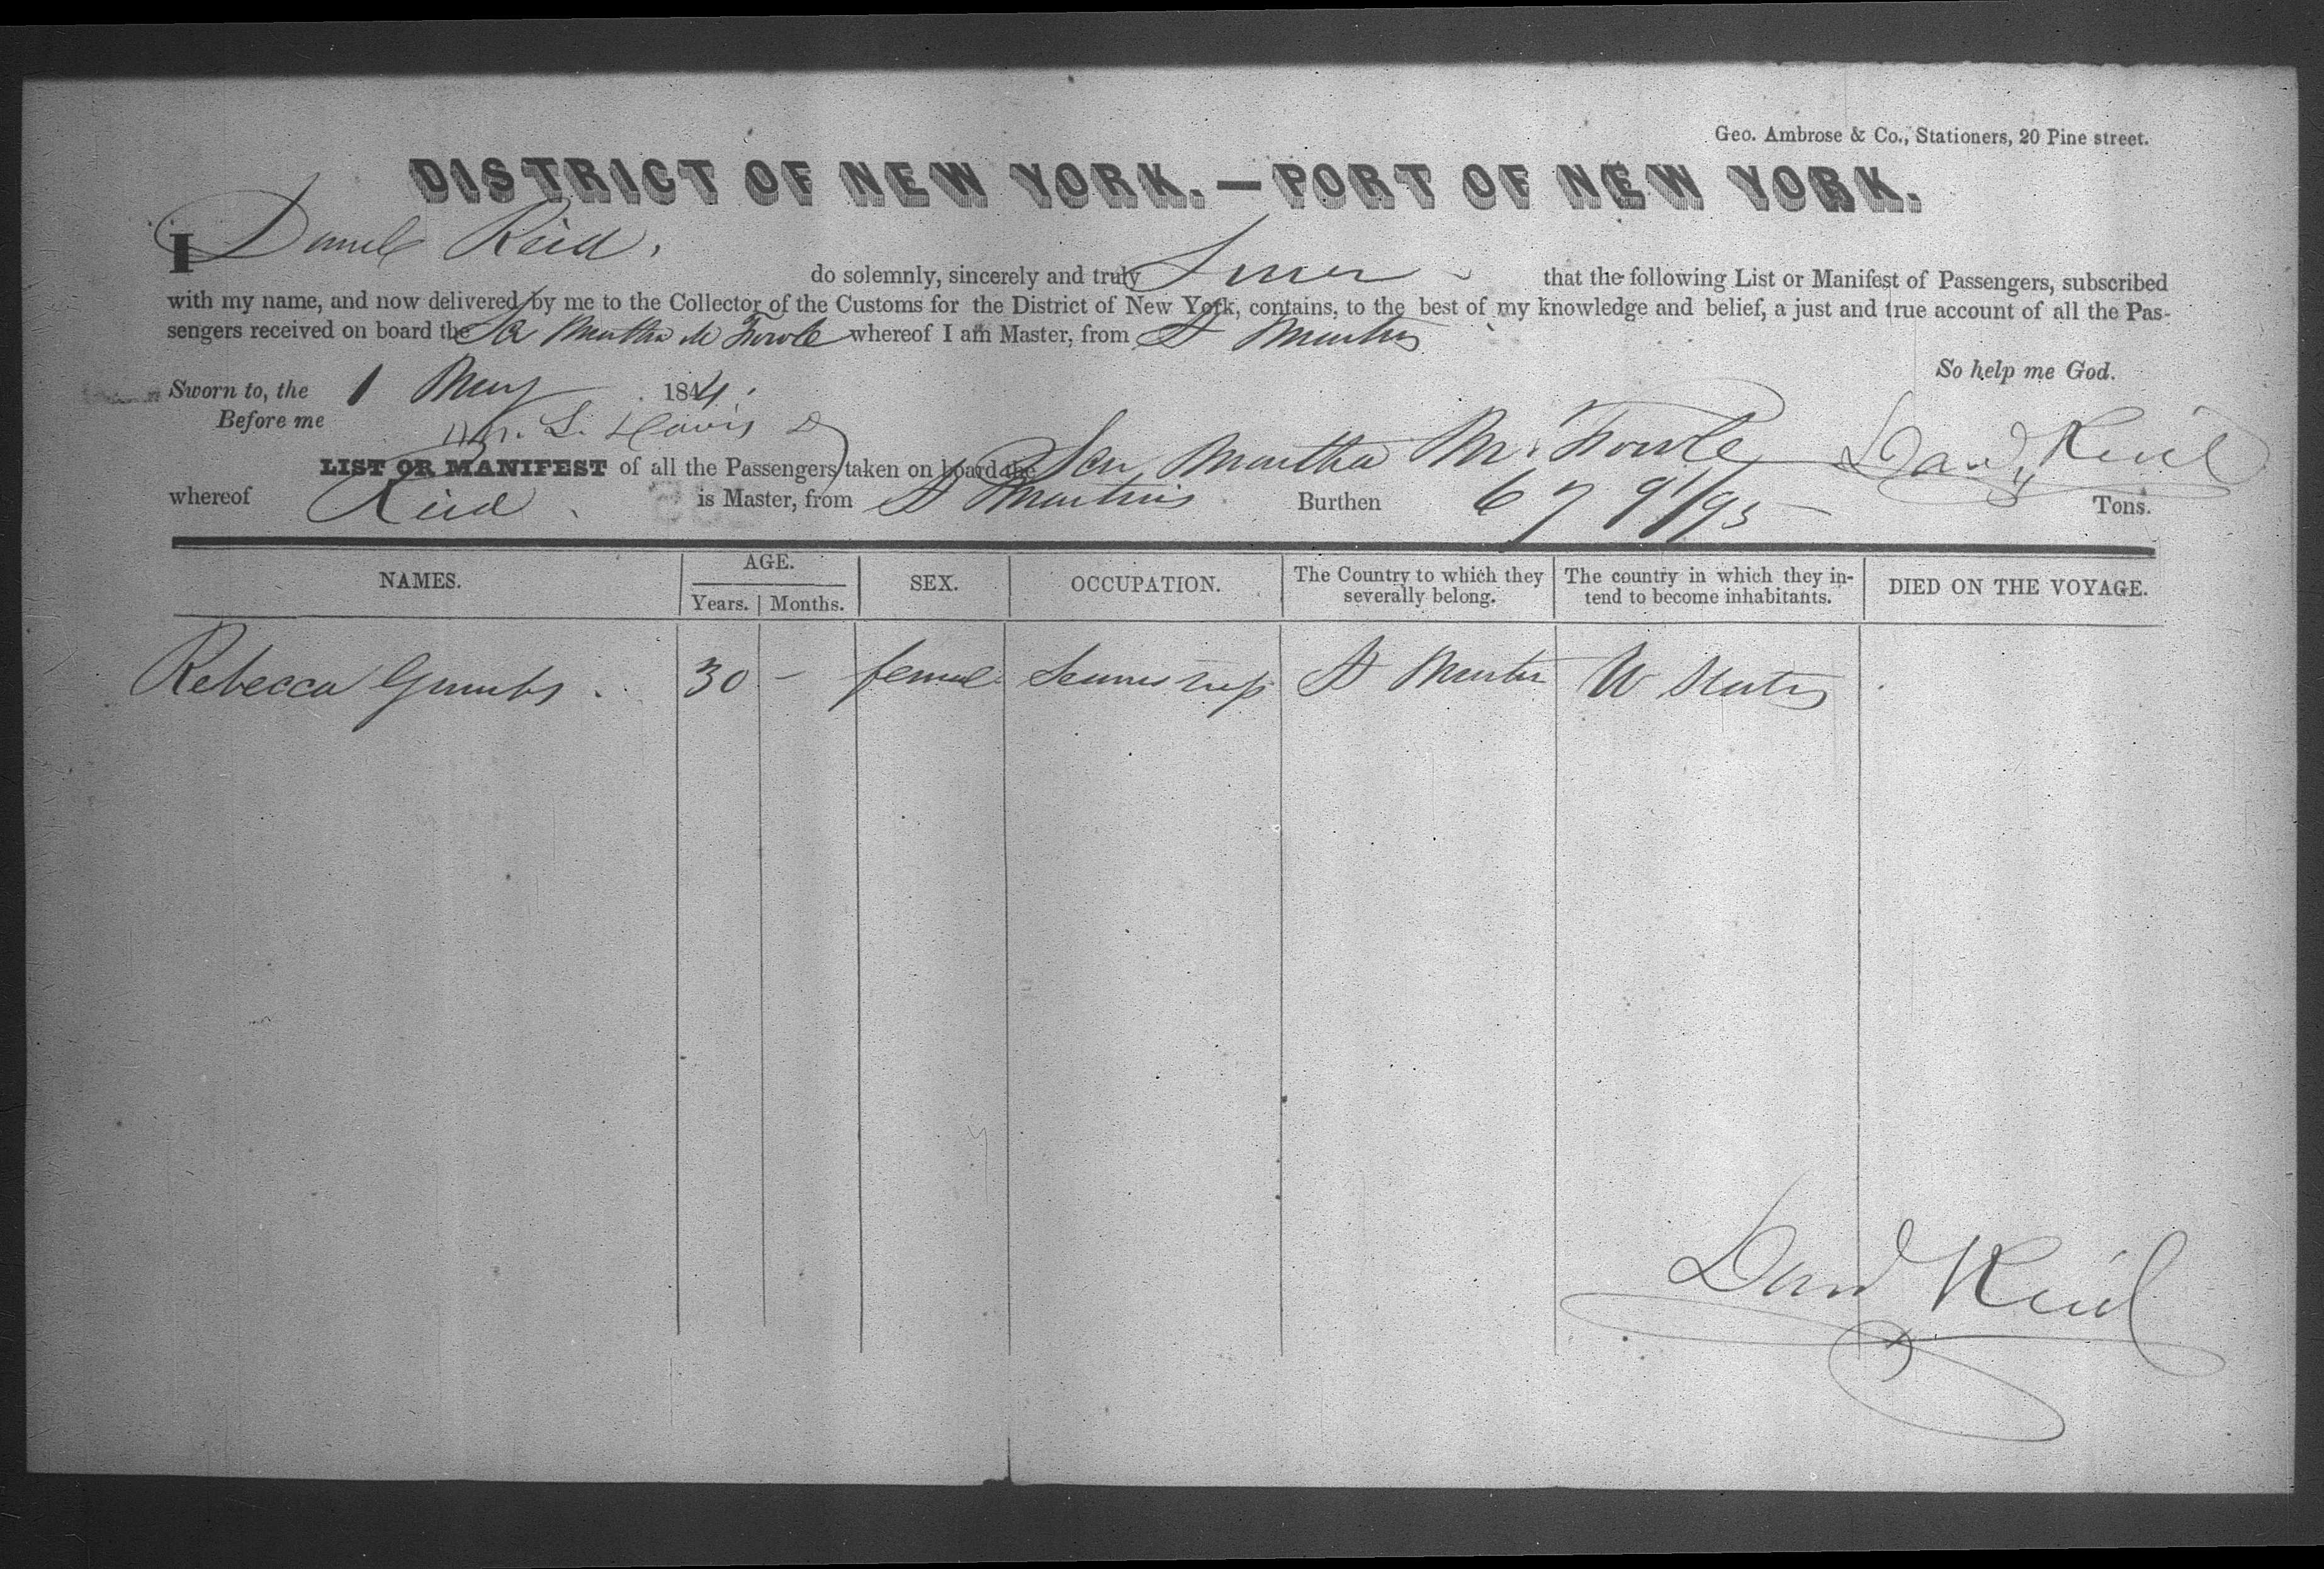 Geo. Ambrose & Co., Stationers, 20 Pine street.
DISTRICT OF NEW YORK.—PORT OF NEW YORK.
I Daniel Reid, do solemnly, sincerely and truly Swear that the following List or Manifest of Passengers, subscribed
with my name, and now delivered by me to the Collector of the Customs for the District of New York, contains, to the best of my knowledge and belief, a just and true account of all the Pas-
sengers received on board the Martha M Fowle whereof I am Master, from St Martins
So help me God.
Sworn to, the 1 May 1844.
Before me
LIST OR MANIFEST of all the Passengers taken on board the Scr Martha M. Fowle David Reid
whereof Reid is Master, from St Martins Burthen 67 91/95 Tons.
NAMES. AGE. SEX. OCCUPATION. The Country to which they severally belong. The country in which they in-tend to become inhabitants. DIED ON THE VOYAGE.
Years. Months.
Rebecca Gumbs. 30 - female Seamstress St Martin U States
David Reid